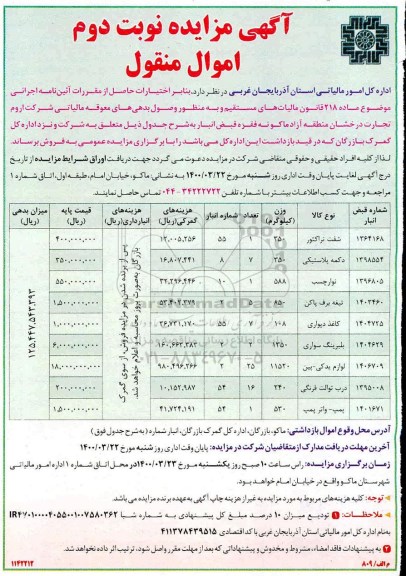 آگهی مزایده نوبت دوم
اموال منقول
اداره کل امور مالیاتی استان آذربایجان غربی در نظر دارد، بنابر اختیارات حاصل از مقررات آئین‌نامه اجرائی
موضوع ماده ۲۱۸ قانون مالیات‌های مستقیم و به منظور وصول بدهی‌های معوقه مالیاتی شرکت اروم
تجارت درخشان منطقه آزاد ماکو نه فقره قبض انبار به شرح جدول ذیل متعلق به شرکت و نزد اداره کل
گمرک بازرگان که در قید بازداشت این اداره کل می باشد، را با برگزاری مزایده عمومی به فروش برساند.
لذا از کلیه افراد حقیقی و حقوقی متقاضی شرکت در مزایده دعوت می گردد جهت دریافت اوراق شرایط مزایده از تاریخ
درج آگهی لغایت پایان وقت اداری روز شنبه مورخ ۱۴۰۰/۰۳/۲۲ به نشانی: ماکو، خیابان امام، طبقه اول، اتاق شماره ۱
مراجعه و جهت کسب اطلاعات بیشتر با شماره تلفن ۳۴۲۲۲۷۲۲ - ۰۴۴ تماس حاصل نمایند.
شماره قبض انبار | نوع کالا | وزن (کیلو) | تعداد | شماره انبار | هزینه‌های گمرکی(ریال) | هزینه‌های انبارداری(ریال) | قیمت پایه (ریال) | میزان بدهی (ریال)
۱۳۶۴۱۶۸ | شفت تراکتور | ۲۵۰ | ۱ | ۵۵ | ۱۲,۰۰۵,۲۵۶ | ۴۰۰,۰۰۰,۰۰۰
۱۳۹۸۵۵۴ | دکمه پلاستیکی | ۲۵۰ | ۷ | ۸ | ۱۶,۸۰۷,۴۴۱ | ۲۵۰,۰۰۰,۰۰۰
۱۳۹۶۸۰۵ | نوارچسب | ۵۸۸ | ۱ | ۱۰ | ۳۲,۲۹۶,۴۴۶ | ۵۵۰,۰۰۰,۰۰۰
۱۴۰۲۴۶۰ | تیغه برف پاکن | ۸۵۰ | ۵ | ۲ | ۱,۵۰۰,۰۰۰,۰۰۰
۱۴۰۴۷۲۵ | کاغذ دیواری | ۱۰۸ | ۷ | ۵۵ | ۱,۰۰۰,۰۰۰,۰۰۰
۱۴۰۴۶۲۹ | بلبرینگ سواری | ۱۲۵۰ | ۶,۰۰۰,۰۰۰,۰۰۰
۱۴۰۶۷۰۹ | لوازم یدکی-پین | ۱۱۵۲۰ | ۱ | ۲۵ | ۹۸۰,۴۹۶,۲۶۶ | ۱۸,۰۰۰,۰۰۰,۰۰۰
۱۳۹۵۰۰۸ | درب توالت فرنگی | ۲۴۰ | ۱۶ | ۵۴ | ۱۰,۱۵۲,۹۸۷ | ۲۰۰,۰۰۰,۰۰۰
۱۴۰۱۶۷۱ | پمپ- واتر پمپ | ۵۳۰ | ۱ | ۵۴ | ۴۱,۷۲۴,۱۹۱ | ۱,۵۰۰,۰۰۰,۰۰۰
پس از برنده شدن در مزایده فروش، از سوی گمرک بازرگان به‌صورت بروز محاسبه و اعلام خواهد شد.
۱۲۵,۴۴۷,۵۴۳,۳۹۳
آدرس محل وقوع اموال بازداشتی: ماکو، بازرگان، اداره کل گمرک بازرگان، انبار شماره ( به شرح جدول فوق )
آخرین مهلت دریافت مدارک از متقاضیان شرکت در مزایده: پایان وقت اداری روز شنبه مورخ ۱۴۰۰/۰۳/۲۲
زمان برگزاری مزایده: راس ساعت ۱۰ صبح روز یکشنبه مورخ ۱۴۰۰/۰۳/۲۳ در محل اتاق شماره ۱ اداره امور مالیاتی
شهرستان ماکو واقع در خیابان امام خواهد بود.
توجه: کلیه هزینه‌های مربوط به مورد مزایده به غیر از هزینه چاپ آگهی به عهده برنده مزایده می باشد.
ملاحظات: ۱ تودیع میزان ۱۰ درصد مبلغ کل پیشنهادی به شماره شبا
به نام اداره کل امور مالیاتی استان آذربایجان غربی با کد اقتصادی ۴۱۱۳۷۸۴۳۹۵۱۵
۲ به پیشنهادات فاقد امضاء، مشروط و مخدوش و پیشنهاداتی که بعد از مهلت مقرر واصل شود، ترتیب اثر داده نخواهد شد.
م الف/ ۸۰۹
۱۱۴۲۲۱۲